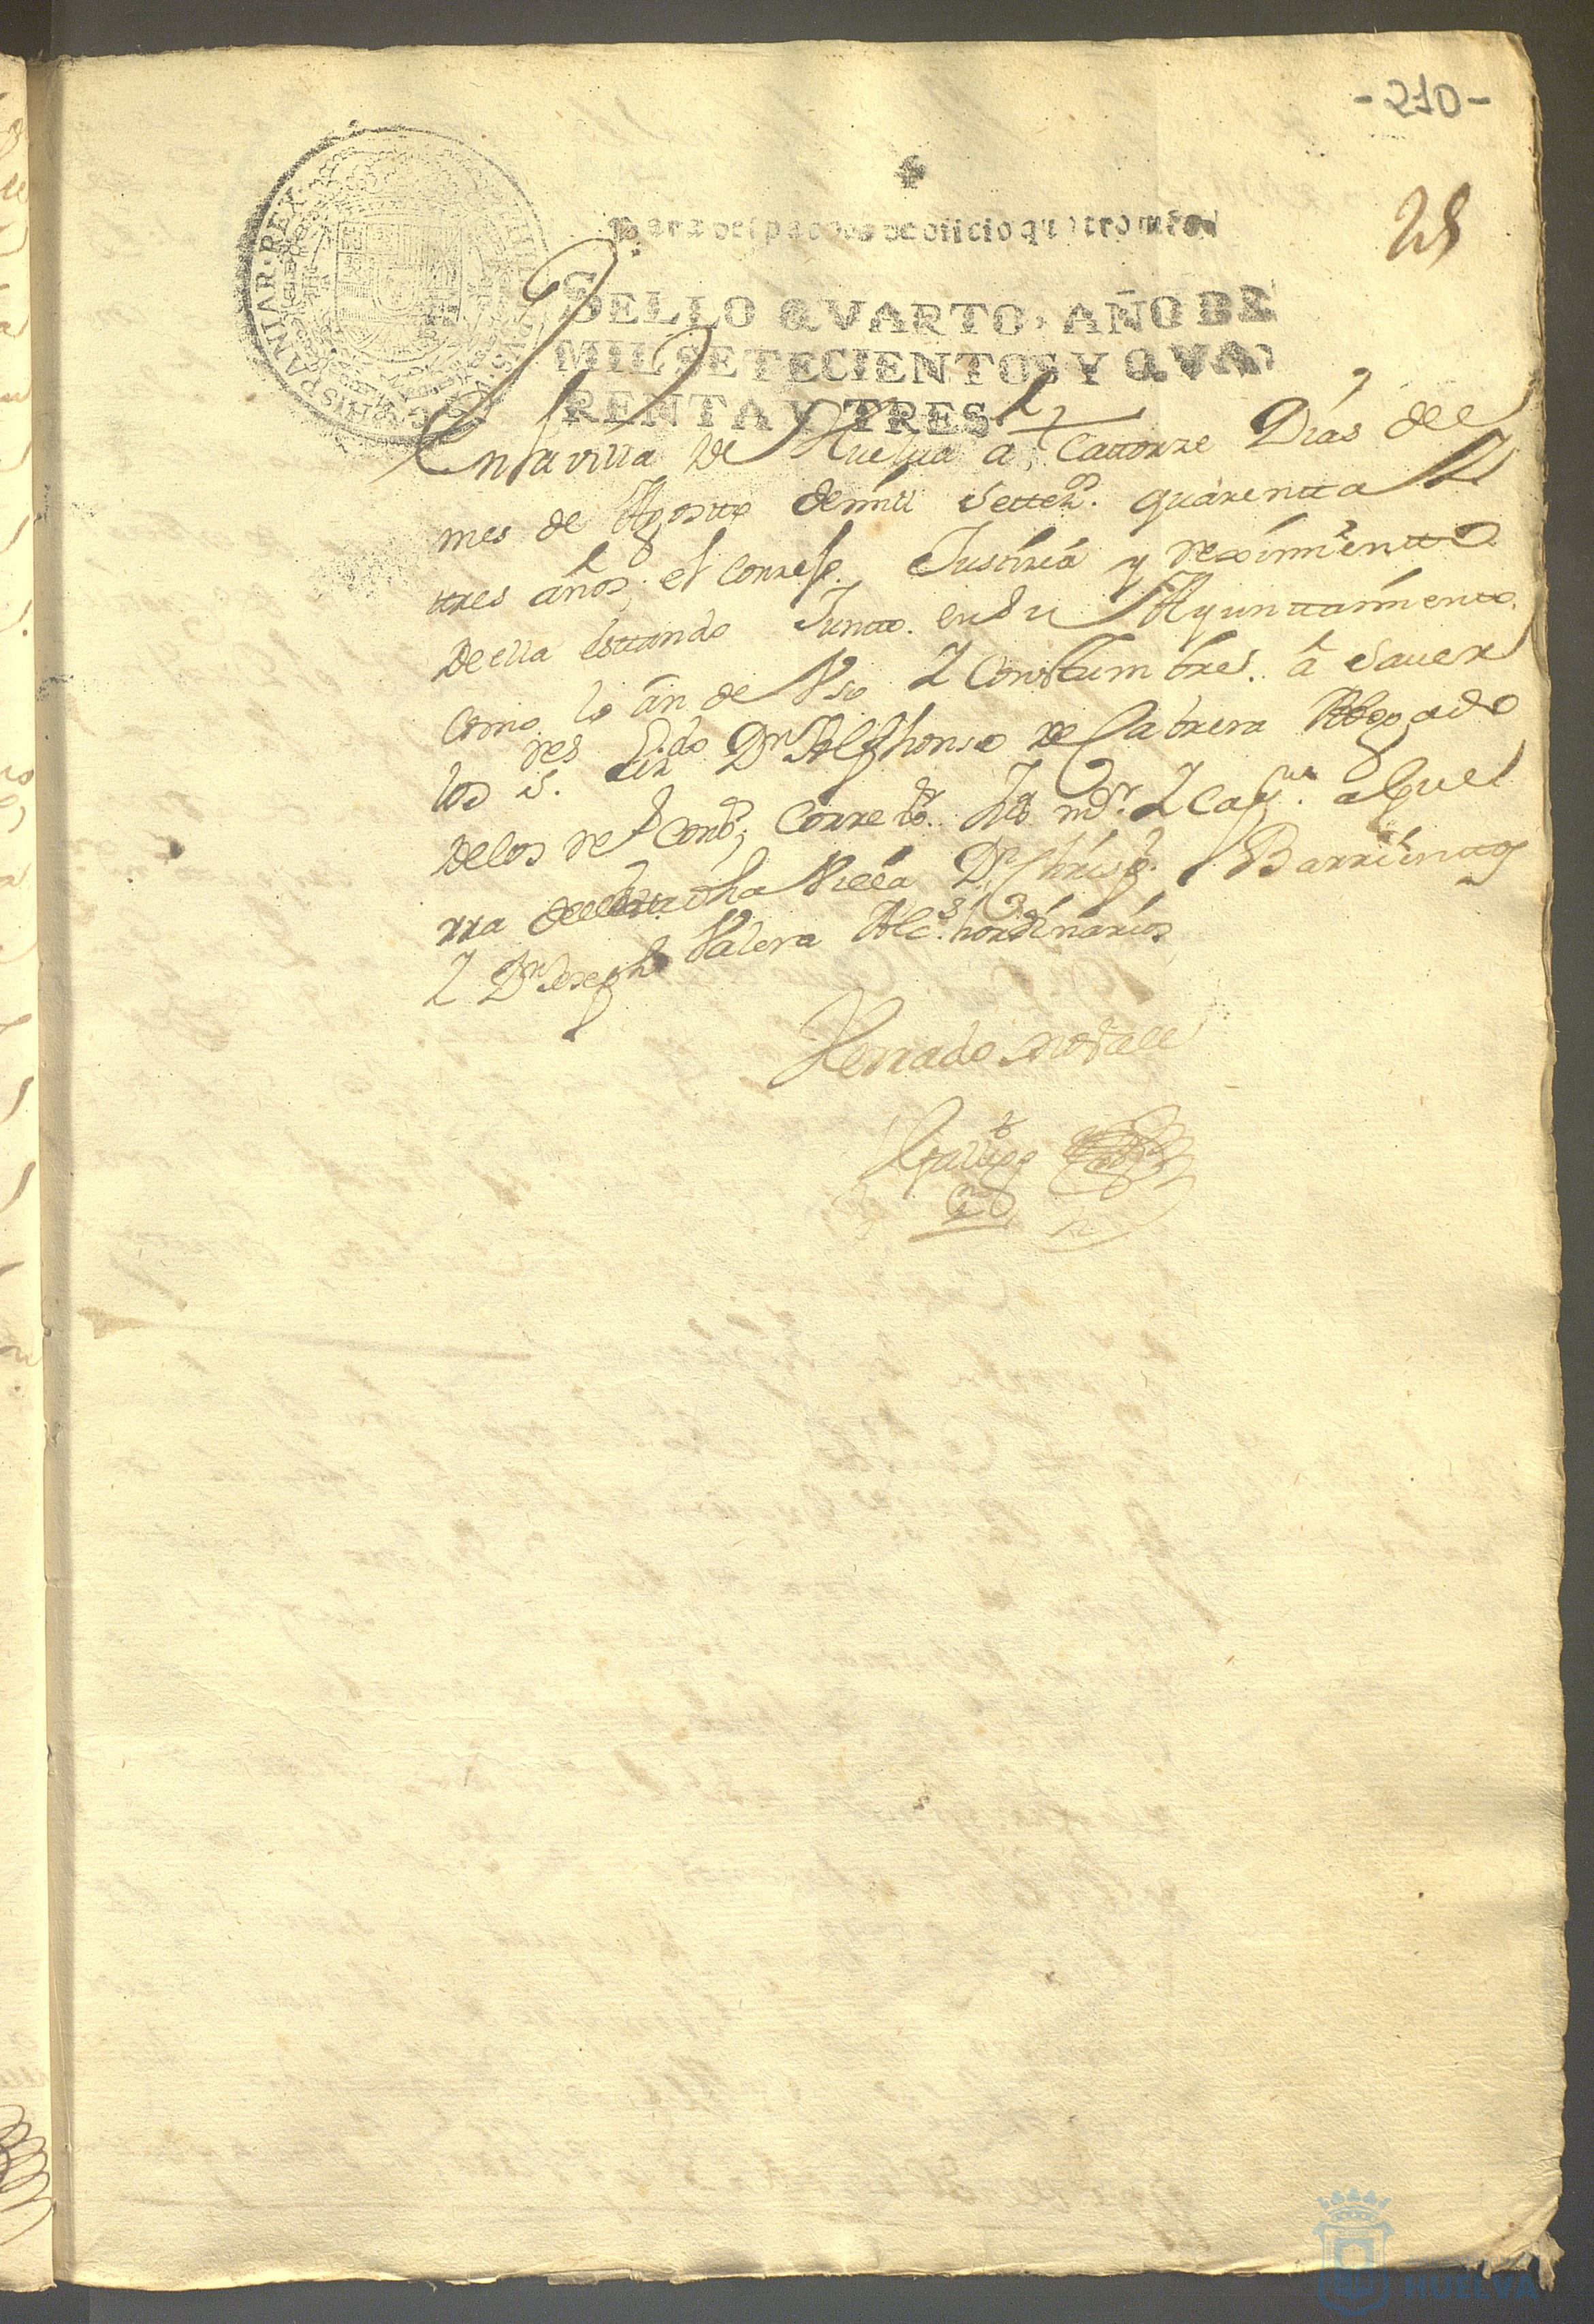 -210-
28
Para despachos de oficio quatro mrs
SELLO QVARTO, AÑO DE
MIL SETECIENTOS Y QVA
RENTA Y TRES
HISPANIAR·REX
En la villa de Huelua a Cattorze Dias del
mes de Agosto de mil Settez.os quarentta Y
ttres años; el Conzejo Justicia y reximientto
de ella esttando Juntto. en su Ayunttamientto
Como lo án de Vso Y Constumbres. â Sauer
los S.res Liz.do Dn Alfhonso de Cabrera Abogado
de los R.s Cons; Corre.or Y Cap.n a Guer
rra dha Villa Dn Christ. Barrienttos
Y Dn Joseph Valera Alc.s hordinarios
Herrado no Vale
HUELVA